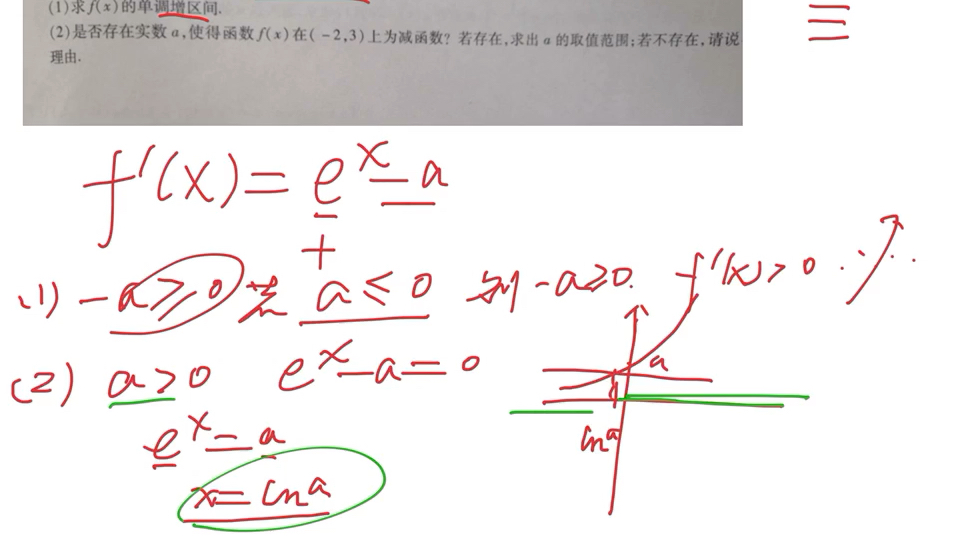 (1)求f(x)的单调增区间.
(2)是否存在实数a,使得函数f(x)在(-2,3)上为减函数?若存在,求出a的取值范围;若不存在,请说
理由.
f'(x)=e^x-a
+
(1) -a≥0 若 a≤0 则 -a≥0. f'(x)>0 ∴
(2) a>0 e^x-a=0
a
e^x=a
lna
x=lna